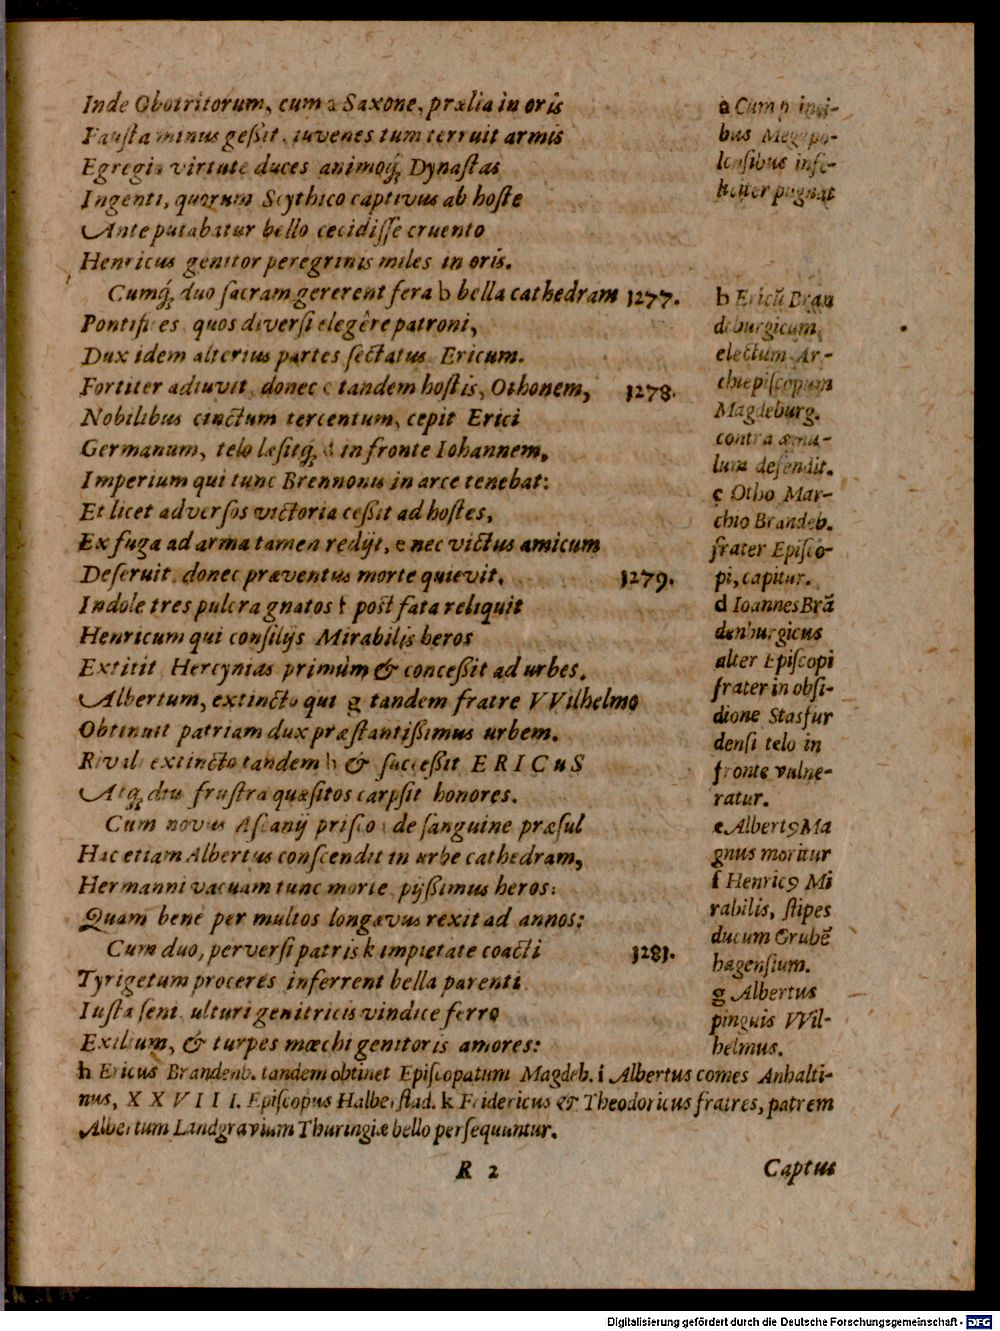 Inde Obotritorum, cum a Saxone, prælia in oris
Fausta minus geßit, iuvenes tum terruit armis
Egregia virtute duces animoq́; Dynastas
Ingenti, quorum Scythico captivus ab hoste
Ante putabatur bello cecidisse cruento
Henricus genitor peregrinis miles in oris.
Cumq́; duo sacram gererent fera b bella cathedram 1277.
Pontifices quos diversi elegêre patroni,
Dux idem alterius partes sectatus Ericum.
Fortiter adiuvit, donec c tandem hostis, Othonem, 1278.
Nobilibus cinctum tercentum, cepit Erici
Germanum, telo læsitq́; d in fronte Iohannem,
Imperium qui tunc Brennonus in arce tenebat:
Et licet adversos victoria ceßit ad hostes,
Ex fuga ad arma tamen redijt, e nec victus amicum
Deseruit, donec præventus morte quievit. 1279.
Indole tres pulcra gnatos f post fata reliquit
Henricum qui consilijs Mirabilis heros
Extitit Hercynias primùm & conceßit ad urbes.
Albertum, extincto qui g tandem fratre VVilhelmo
Obtinuit patriam dux præstantißimus urbem.
Rivali extincto tandem h & succeßit ERICuS
Atq́; diu frustra quæsitos carpsit honores.
Cum novus Ascanij prisco i de sanguine præsul
Hac etiam Albertus conscendit in urbe cathedram,
Hermanni vacuam tunc morte pijßimus heros:
Quam bene per multos longævus rexit ad annos:
Cum duo, perversi patris k impietate coacti 1281.
Tyrigetum proceres inferrent bella parenti
Iusta sent. ulturi genitricis vindice ferro
Exilium, & turpes mœchi genitoris amores:
a Cum principi-
bus Megapo-
lensibus infe-
liciter pugnat
b Ericũ Bran
deburgicum,
electum Ar-
chiepiscopum
Magdeburg.
contra æmu-
lum defendit.
c Otho Mar-
chio Brandeb.
frater Episco-
pi, capitur.
d Ioannes Brã
denburgicus
alter Episcopi
frater in obsi-
dione Stasfur
densi telo in
fronte vulne-
ratur.
e Albertꝰ Ma
gnus moritur
f Henricꝰ Mi
rabilis, stipes
ducum Grubẽ
hagensium.
g Albertus
pinguis VVil-
helmus.
h Ericus Brandenb. tandem obtinet Episcopatum Magdeb. i Albertus comes Anhalti-
nus, XXVIII. Episcopus Halberstad. k Fridericus & Theodoricus fratres, patrem
Albertum Landgravium Thuringiæ bello persequuntur.
R 2 Captus
Digitalisierung gefördert durch die Deutsche Forschungsgemeinschaft - DFG